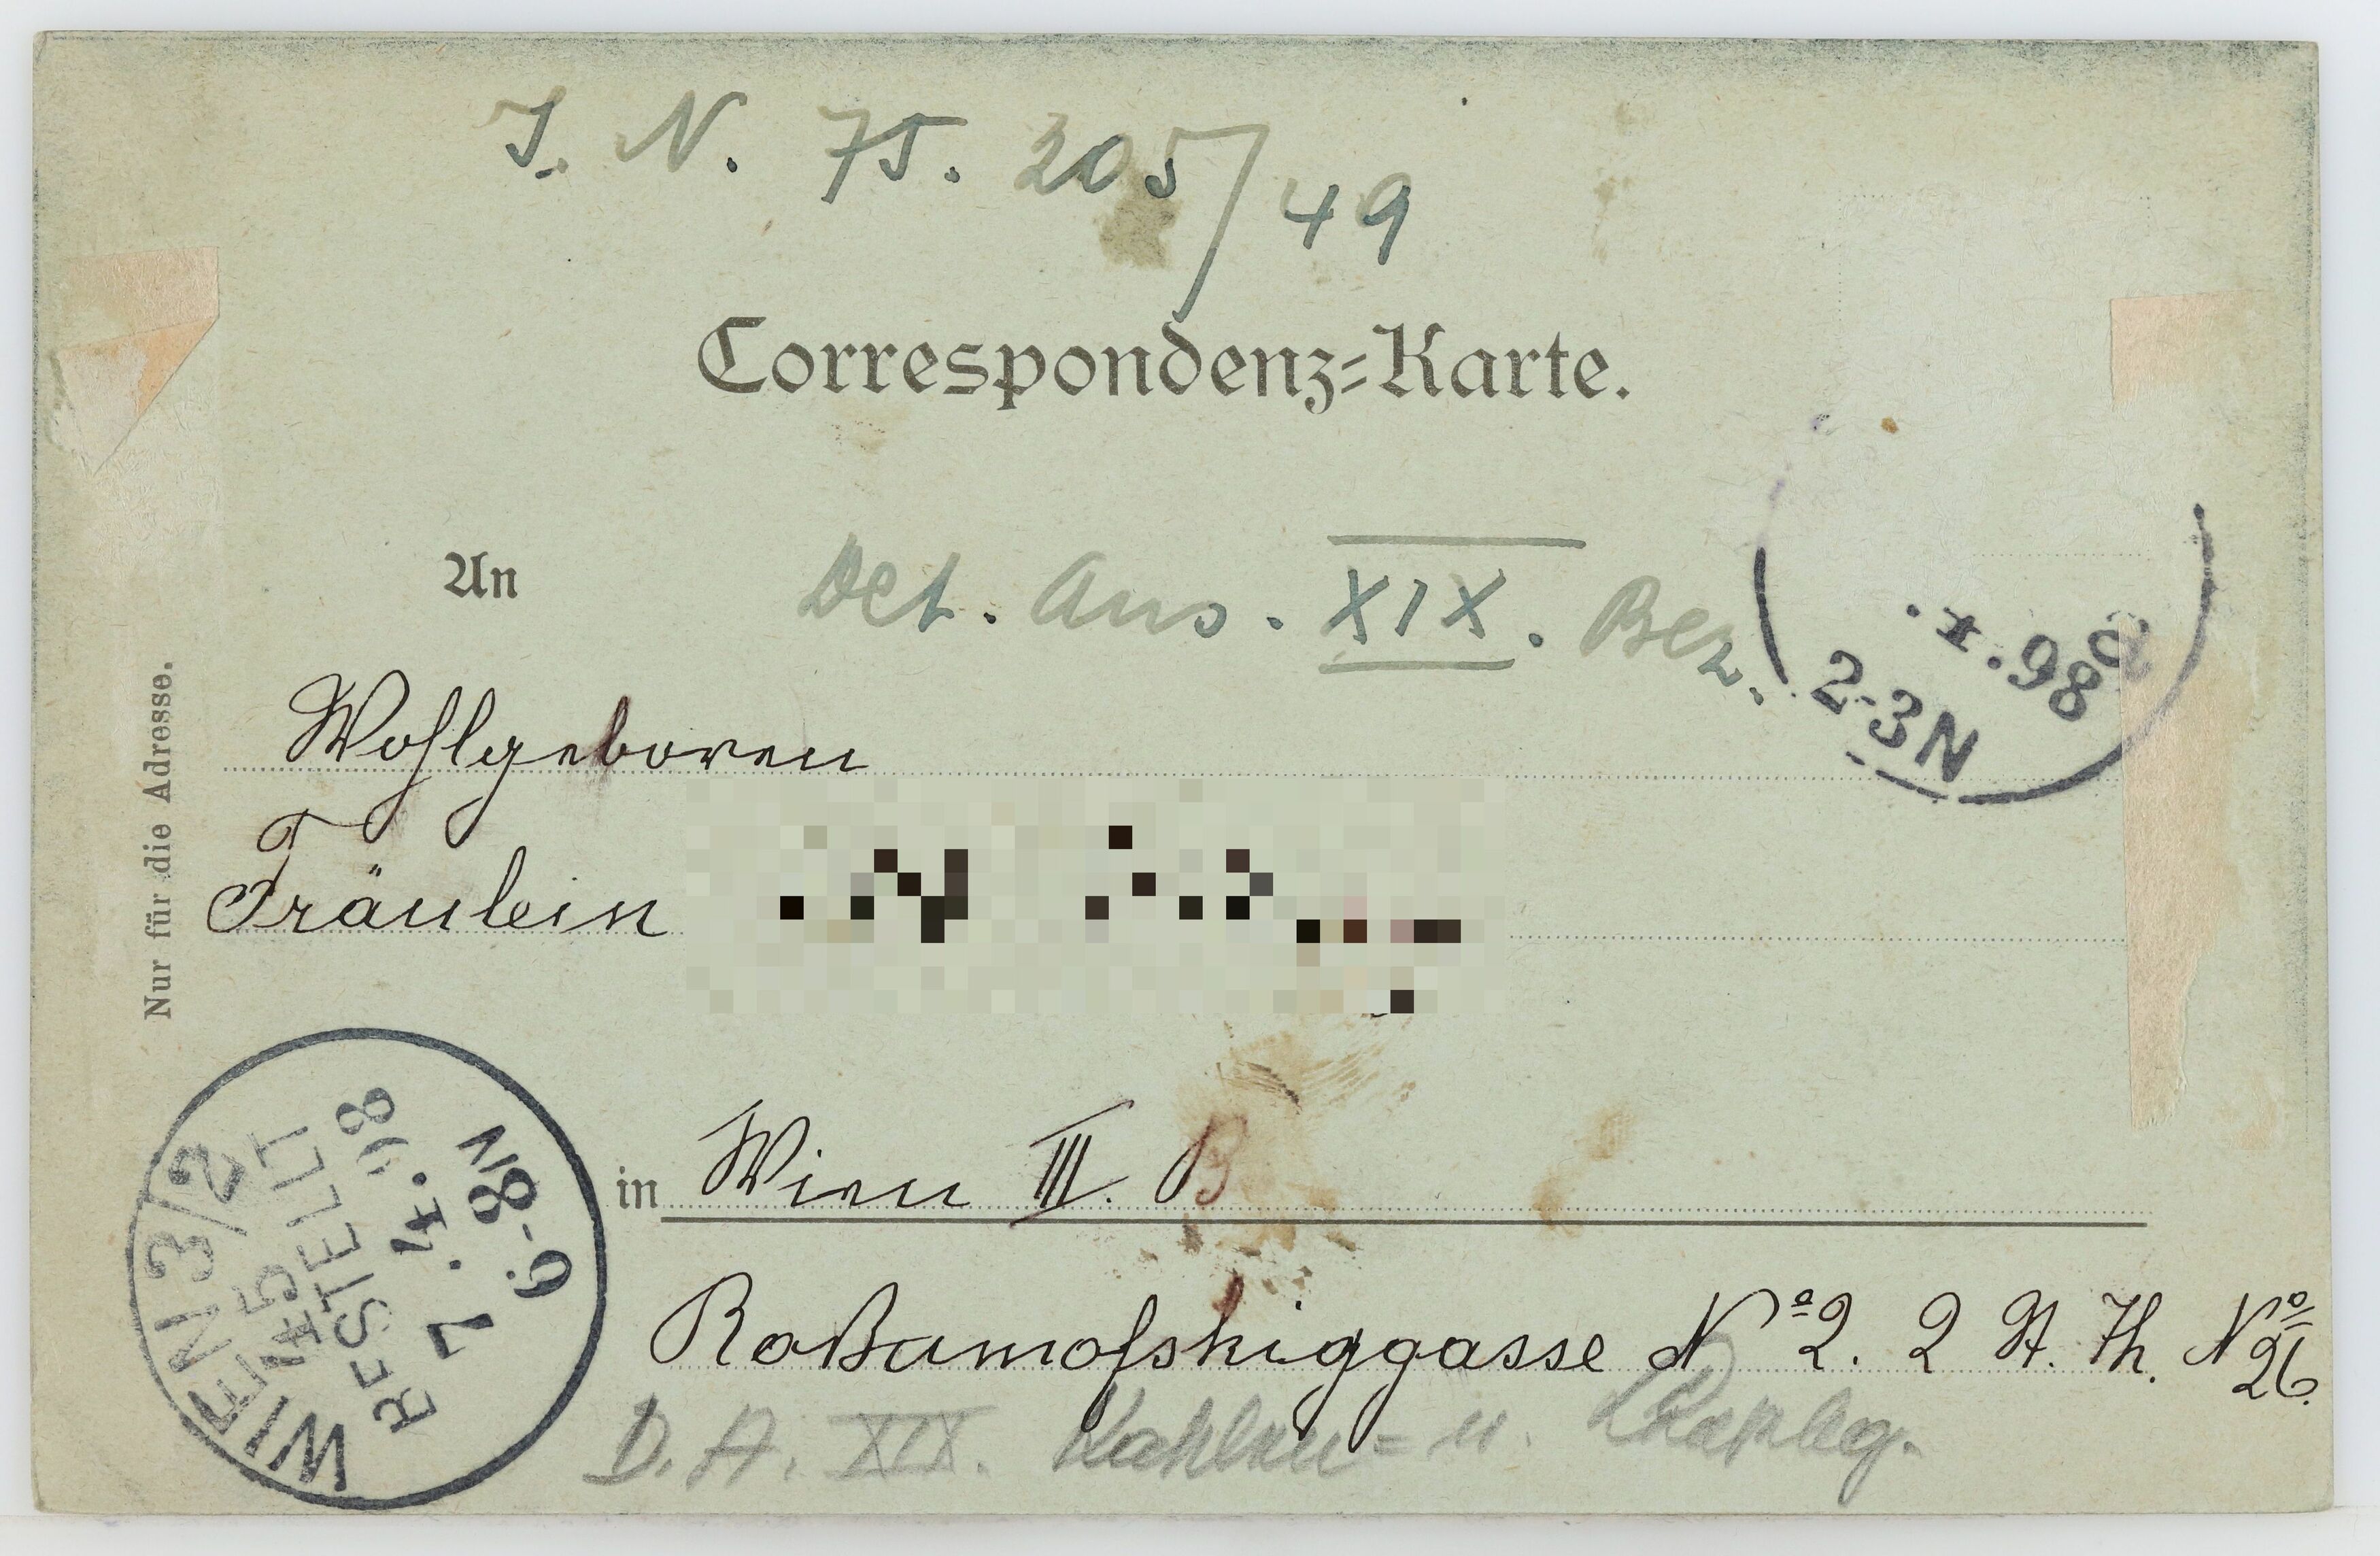 I. N. 75. 205/49
Correspondenz-Karte.
An
Det. Ans. XIX. Bez.
. x . 98
2-3N
Nur für die Adresse.
Wohlgeboren
Fräulein
WIEN 3/2
45
BESTELLT
7 . 4. 98
6-8N
in Wien III. B
Raßumofskiggasse Nº 2. 2 St. Th. Nº 26.
D. A. XIX. Kahlen= u.